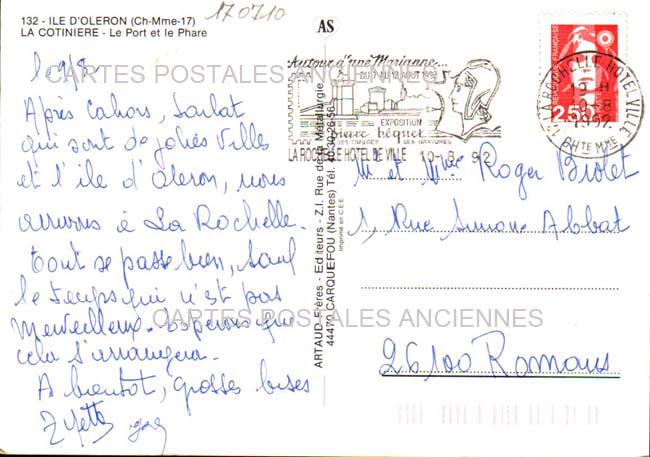 170710
132 - ILE D'OLERON (Ch-Mme-17)
LA COTINIERE - Le Port et le Phare
AS
le 9/8
Après Cahors, Sarlat
qui sont de jolies villes
et l'ile d'oleron, nous
arrivons à La Rochelle.
tout se passe bien, sauf
le temps qui n'est pas
merveilleux. esperons que
cela s'arrangera.
A bientôt, grosses bises
CARTES POSTALES ANCIENNES
CARTES POSTALES ANCIENNES
ARTAUD Frères - Editeurs - Z.I. Rue de la Métallurgie
44470 CARQUEFOU (Nantes) Tél. 40-30-26-56
Imprimé en C.E.E.
Autour d'une Marianne...
DU 7 AU 18 AOUT 1992
EXPOSITION
pierre béquet
SES TIMBRES SES GRAVURES
LA ROCHELLE HOTEL DE VILLE 10-8 92
REPUBLIQUE FRANÇAISE
2,50
LA ROCHELLE HOTEL VILLE
19 H
10-8
1992
CHTE MME
M et Mme Roger Biolet
1, Rue Simone Abbat
26100 Romans